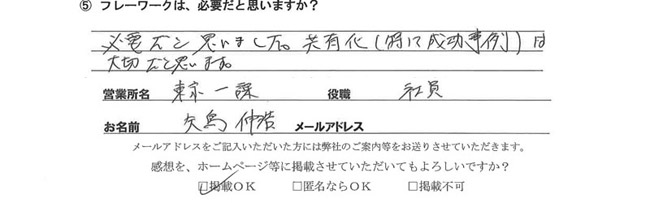 ⑤ フレーワークは、必要だと思いますか?
必要だと思いました。共有化(特に成功事例)は
大切だと思います。
営業所名 東京一課 役職 社員
お名前 矢島 伸浩 メールアドレス
メールアドレスをご記入いただいた方には弊社のご案内等をお送りさせていただきます。
感想を、ホームページ等に掲載させていただいてもよろしいですか?
☑掲載OK □匿名ならOK □掲載不可